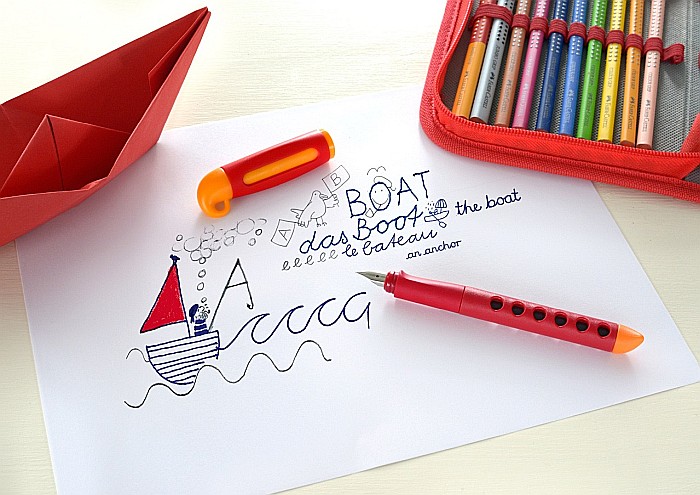 B
A
BOAT
das Boot the boat
eeeee le bateau
an anchor
A